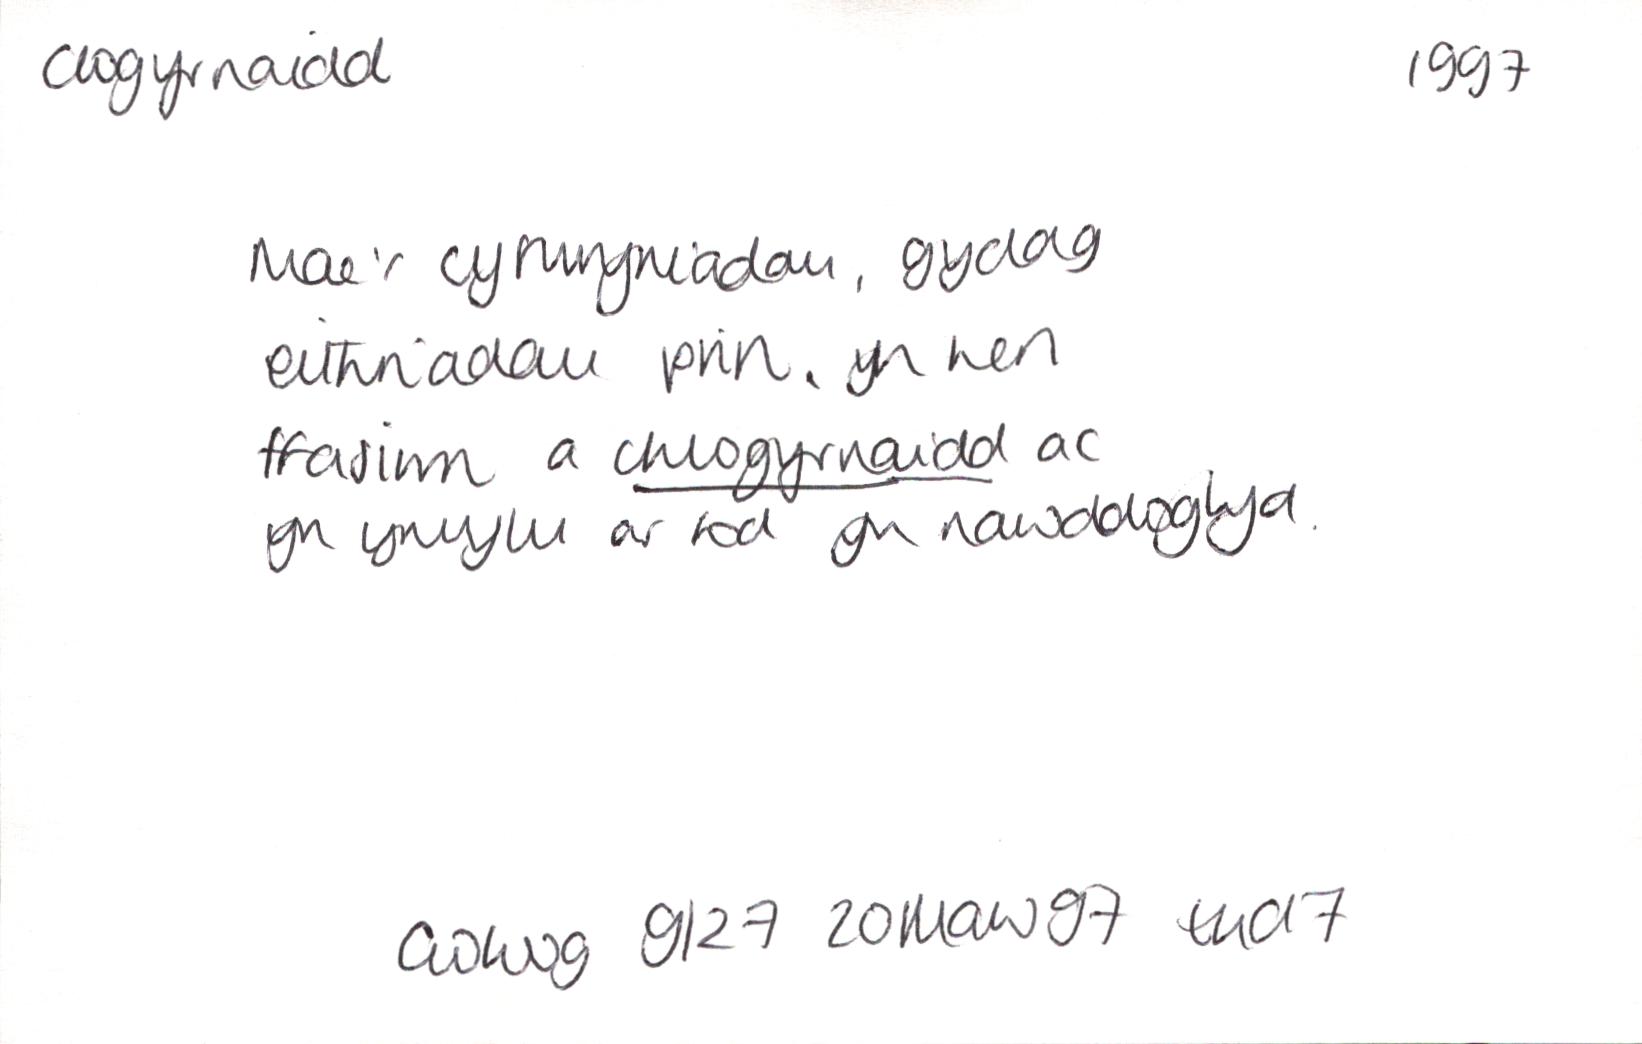 clogyrnaidd 1997
Mae'r cyflwyniadau, gydag
eithriadau prin, yn hen
ffasiwn a chlogyrnaidd ac
yn ymylu ar fod yn nawddoglyd.
Golwg 9/27 20 Maw 97 tud 7